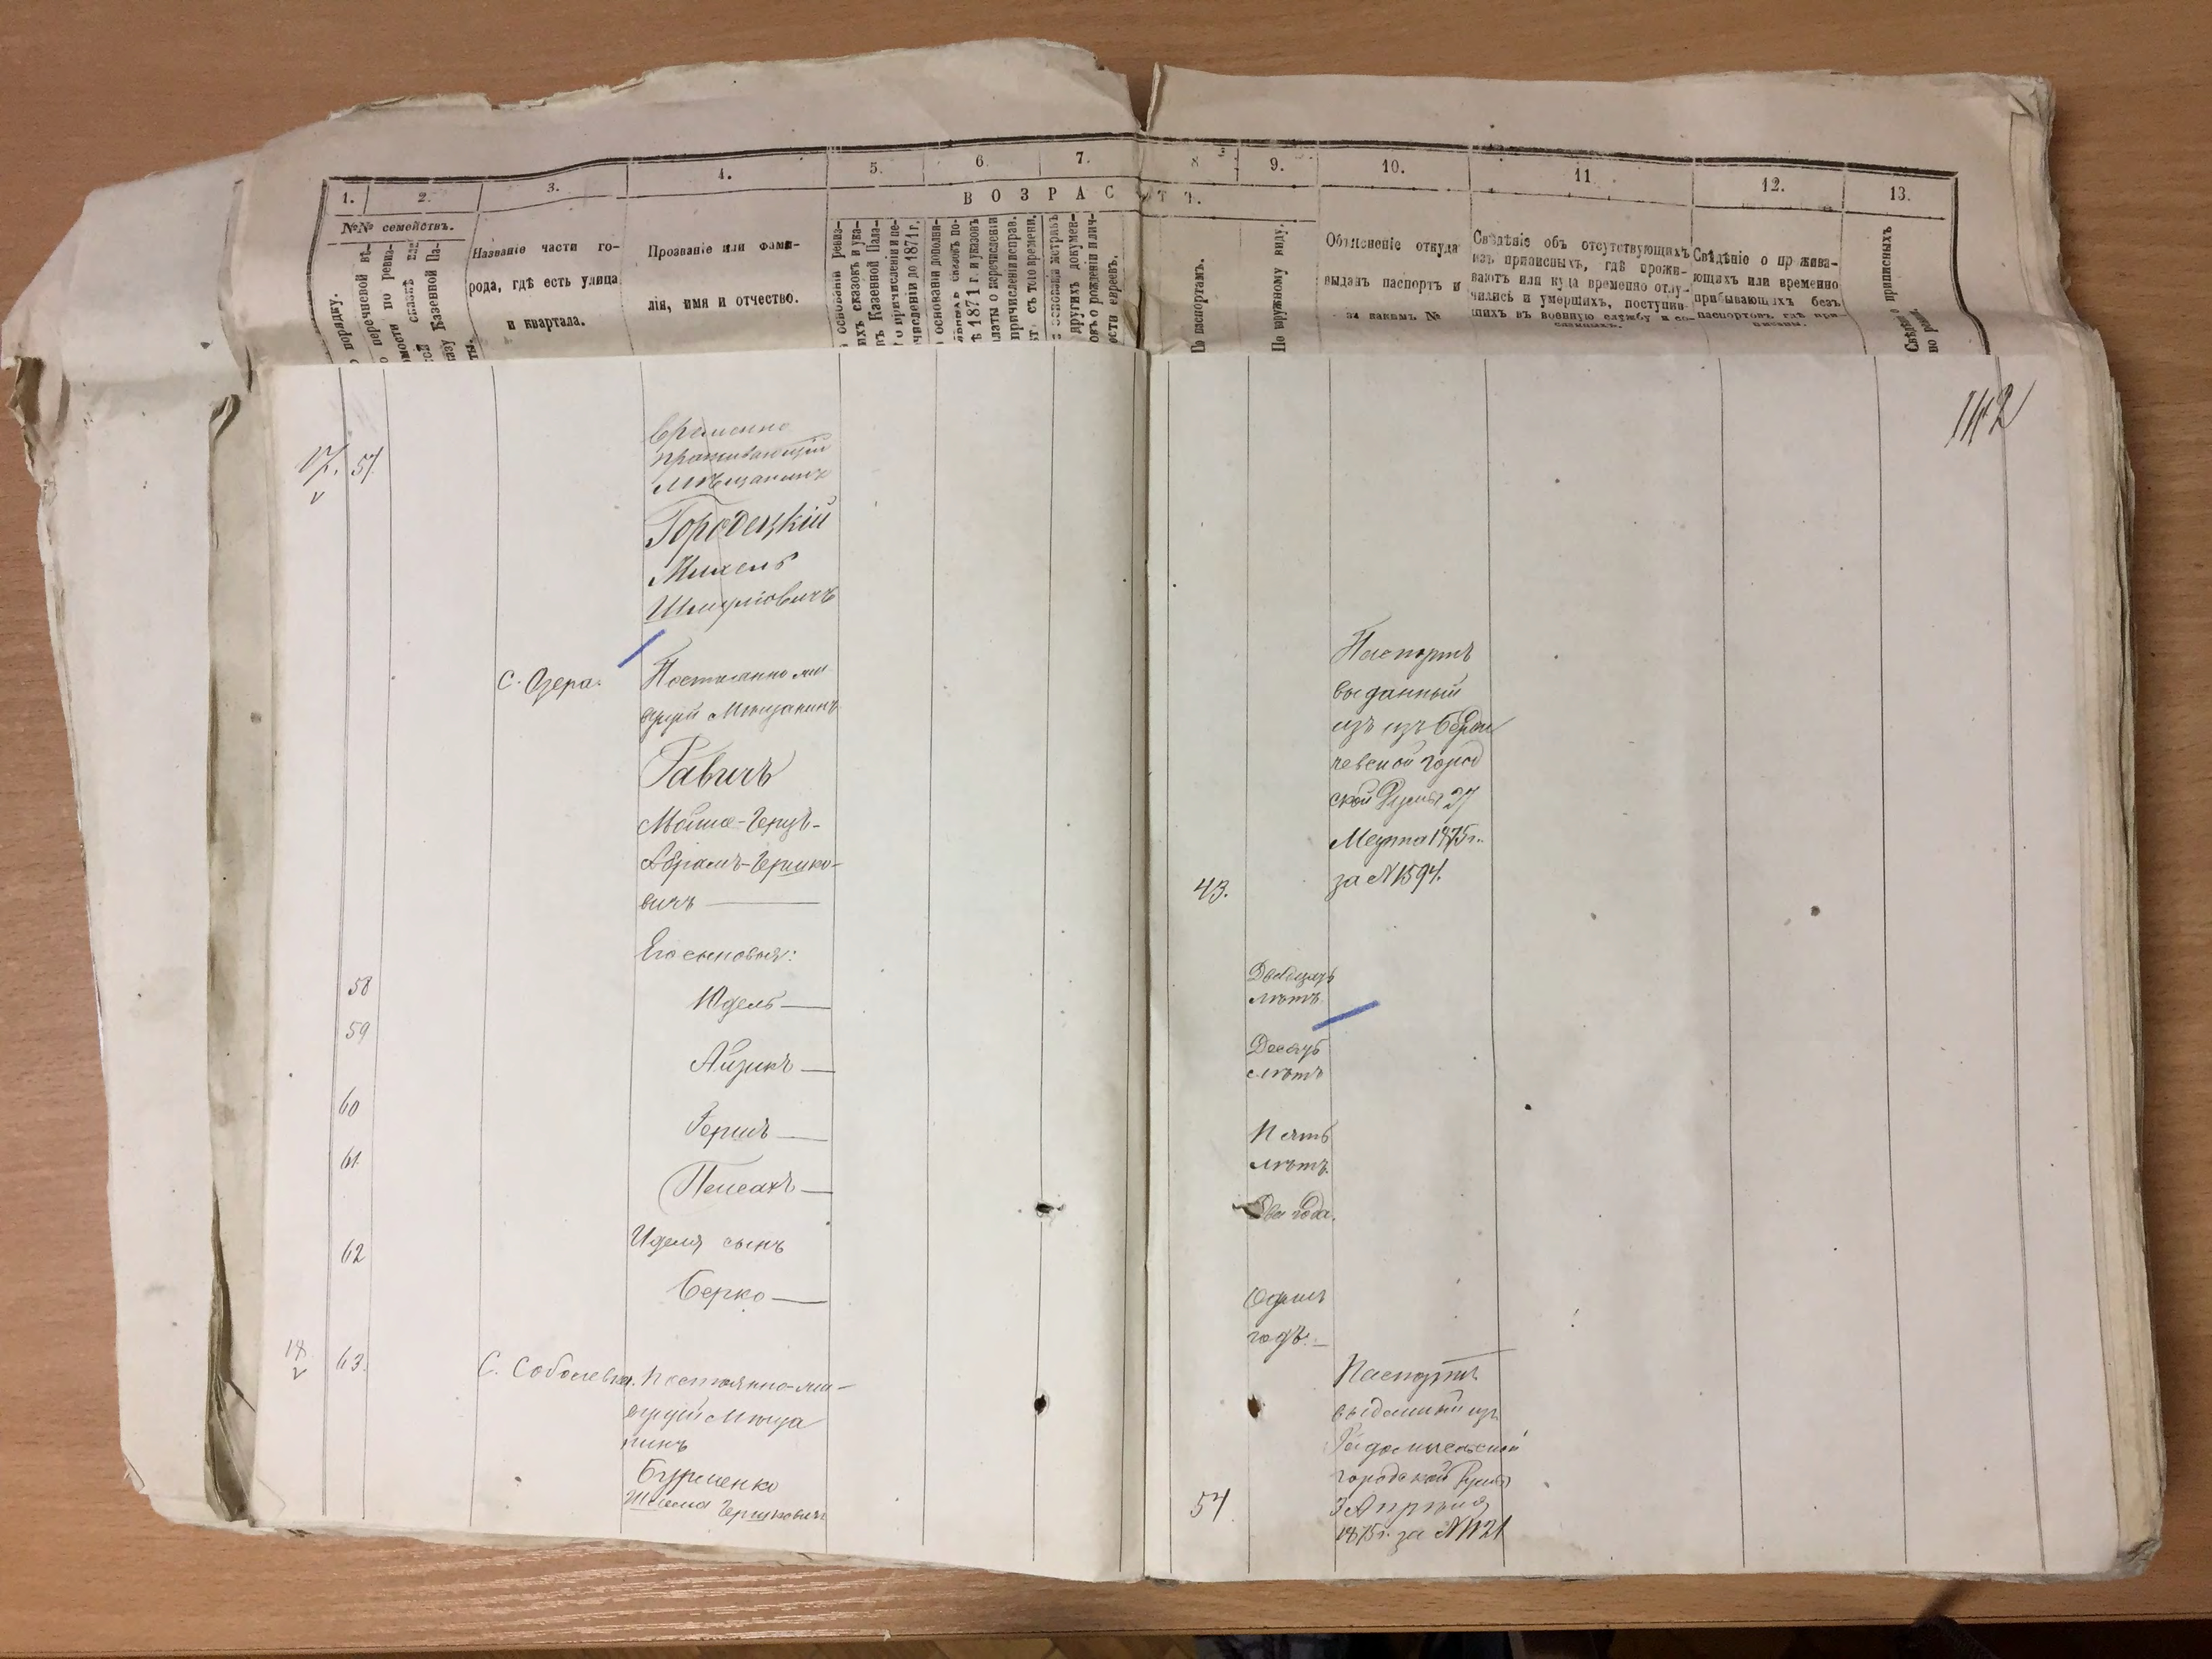 1. 2. 3. 4. 5. 6. 7. 8. 9. 10. 11 12. 13.
ВОЗРАСТЪ.
№№ семействъ.
порядку.
перечневой вѣ-
мости по ревиз-
Казенной Па-
Названіе части го-
рода, гдѣ есть улица
и квартала.
Прозваніе или фами-
лія, имя и отчество.
основаніи ревиз-
ихъ сказокъ и ука-
ъ Казенной Пала-
о причисленіи и пе-
численіи до 1871 г.
основаніи дополни-
1871 г. и указовъ
латы о перечисленіи
причисленіи исправ.
съ того времени.
других докумен-
овъ о рожденіи и лич-
ости евреевъ.
По паспортамъ.
По наружному виду.
Объясненіе откуда
выданъ паспортъ и
за какимъ №
Свѣдѣніе объ отсутствующихъ
изъ приписныхъ, гдѣ прожи-
ваютъ или куда временно отлу-
чились и умершихъ, поступив-
шихъ въ военную службу и со-
сланныхъ.
Свѣдѣніе о прожива-
ющихъ или временно
прибывающихъ безъ
паспортовъ, гдѣ при-
писаны.
приписныхъ
142
17. 57.
Временно
проживающій
мѣщанинъ
Городецкій
Михель
Шмулiовичъ
С. Озера.
Постоянно жи
вущій Мѣщанинъ
Равичъ
Мойше-Герцъ-
Абрамъ-Гершко-
вичъ
43.
Паспортъ
выданный
изъ изъ Берди
чевской город
ской Думы 27
Марта 1875 г.
за № 1594.
Его сыновья:
58 Юдель Двадцать
лѣтъ
59 Айзикъ Десять
лѣтъ
60 Гершъ Пять
лѣтъ
61 Пейсахъ Два года.
Иделя сынъ
62 Берко Одинъ
годъ.
18 63. С. Соболевка. Постоянно-жи-
вущій Мѣща
нинъ
Бурменко
Шлема Гершковичъ
54
Паспортъ
выданный изъ
Радомысльской
городской Думы
3 Апрѣля
1875 г. за № 1121